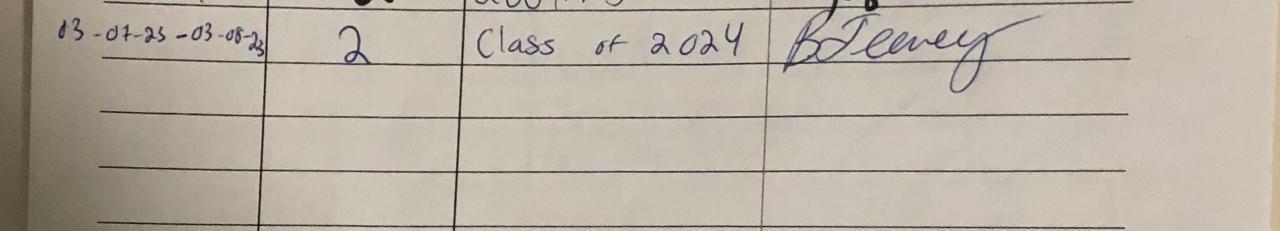 03-07-23 - 03-08-23 2 Class of 2024